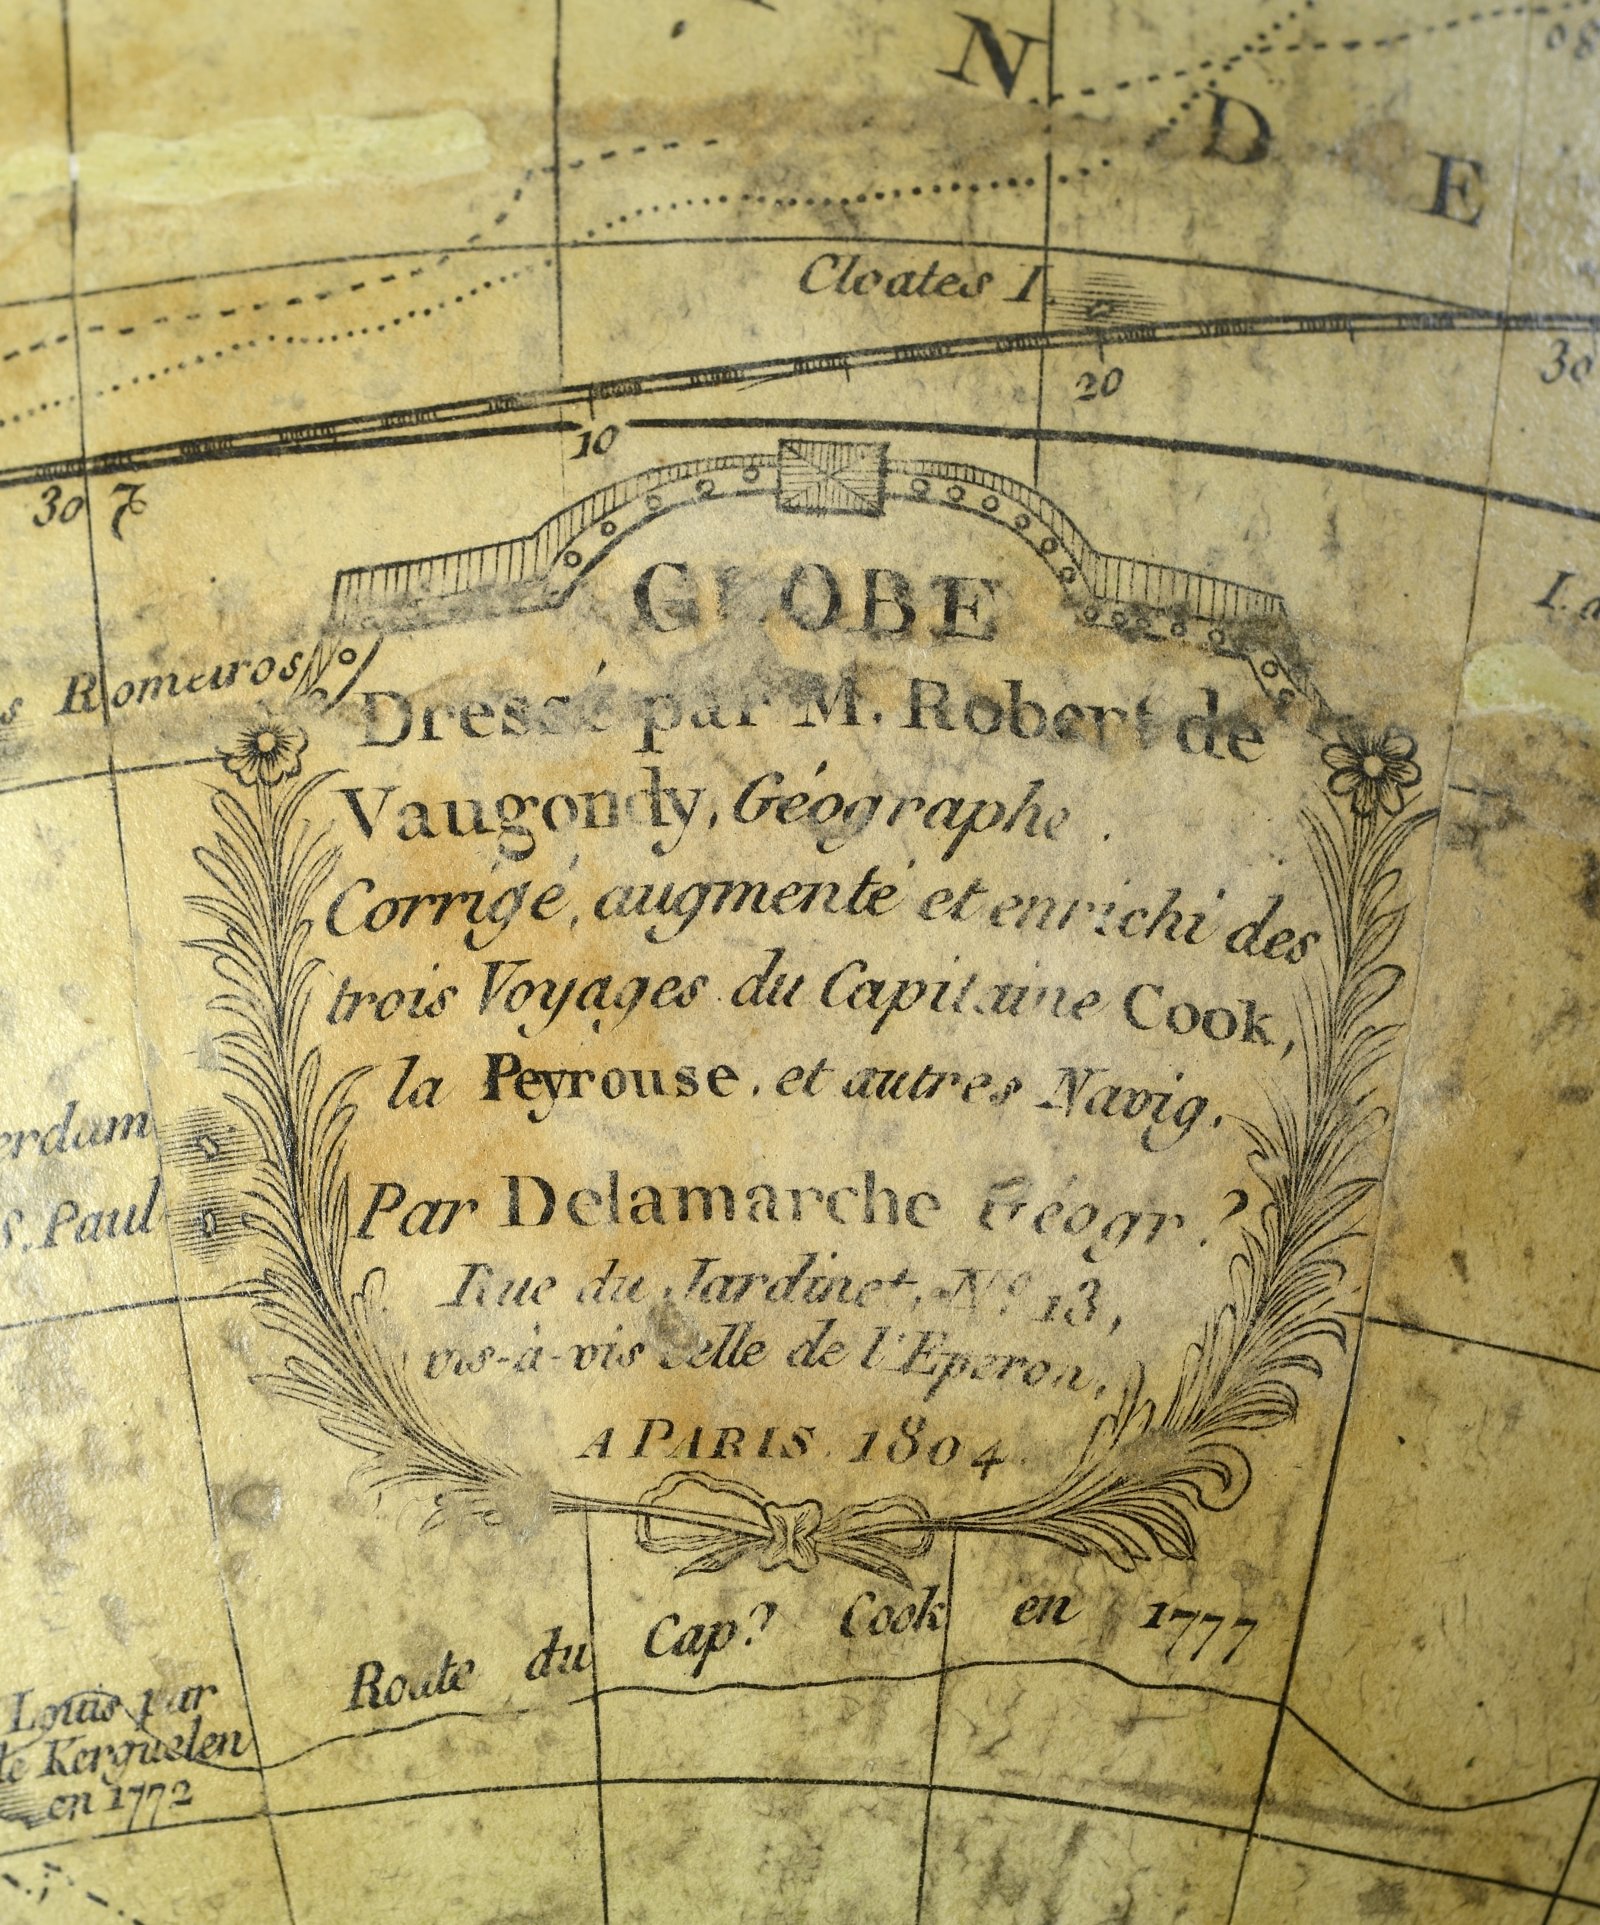 N D E
Cloates I.
20
30
10
30 ♑
GLOBE
Romeiros
Dressé par M. Robert de
Vaugondy, Géographe.
Corrigé, augmenté et enrichi des
trois Voyages du Capitaine Cook,
la Peyrouse, et autres Navig.
erdam
Par Delamarche Géogr.
S. Paul
Rue du Jardinet, No. 13,
vis-à-vis celle de l'Eperon,
A PARIS. 1804.
Route du Cap.e Cook en 1777
Louis par
de Kerguelen
en 1772